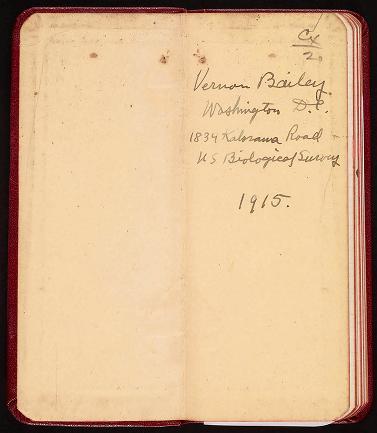 Cx
2
Vernon Bailey.
Washington D.C.
1834 Kalorama Road
U S Biological Survey
1915.